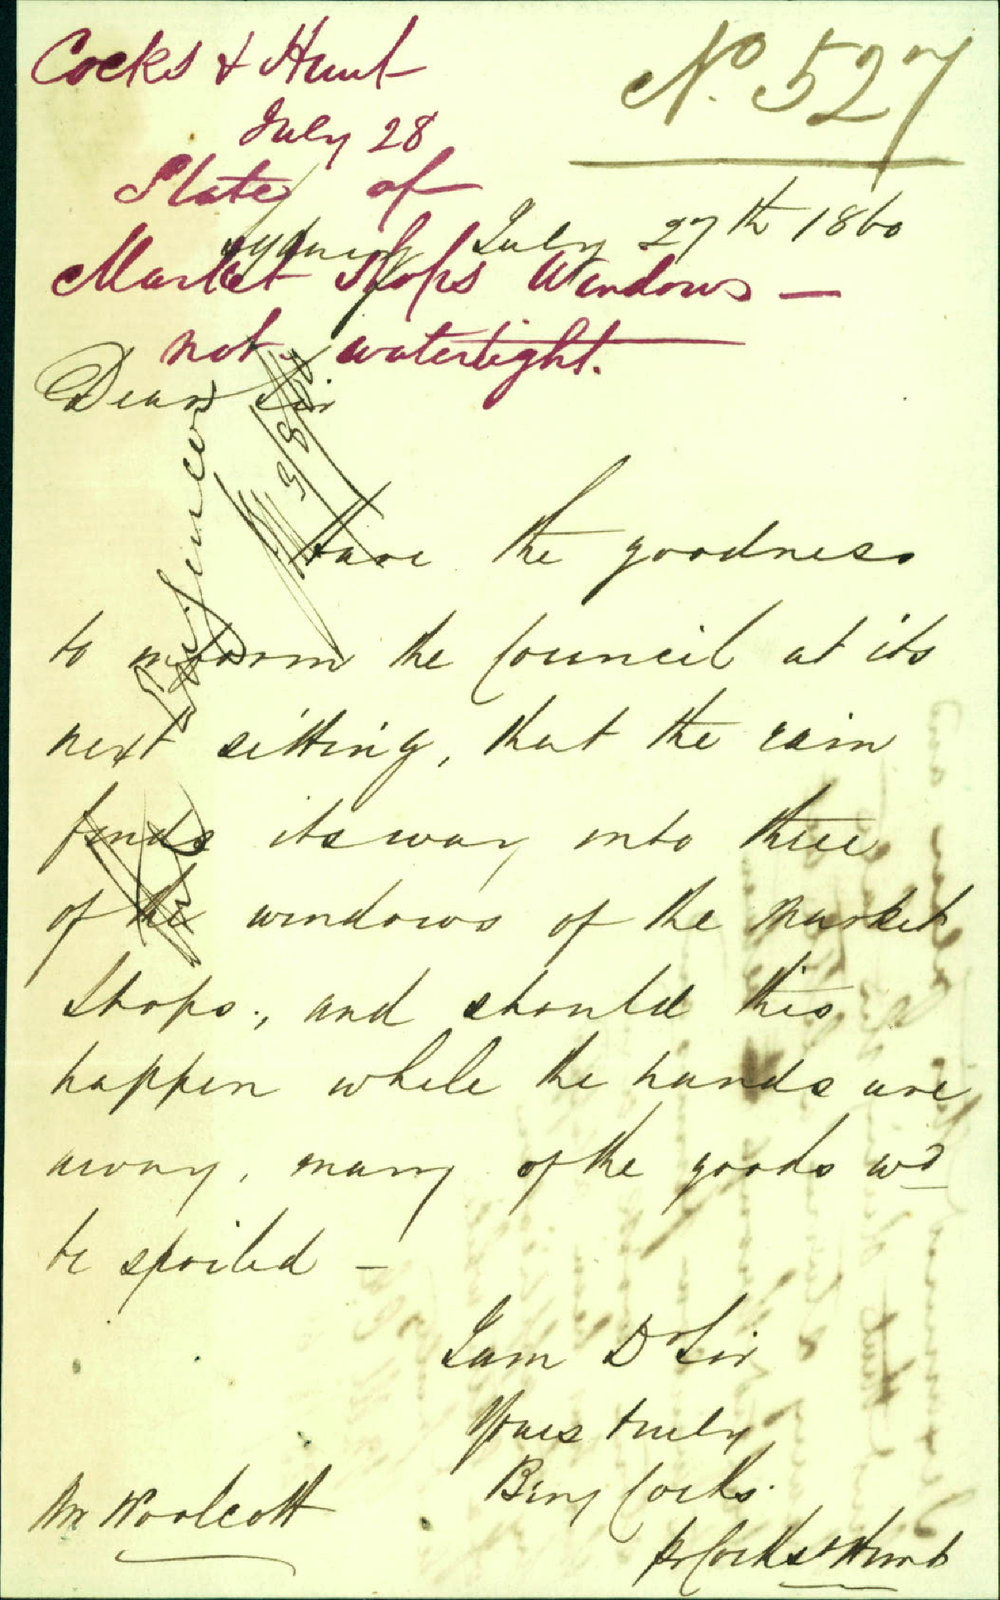 Cocks & Hunt
No. 527
July 28
State of
Sydney July 27th 1860
Market Shops Windows —
not watertight.
Dear Sir
Have the goodness
to inform the Council at its
next sitting, that the rain
finds its way into three
of the windows of the Market
Shops, and should this
happen while the hands are
away, many of the goods wd
be spoiled —
I am Dr Sir
Yours truly
Benj Cocks.
pr Cocks & Hunt
Mr Woolcott